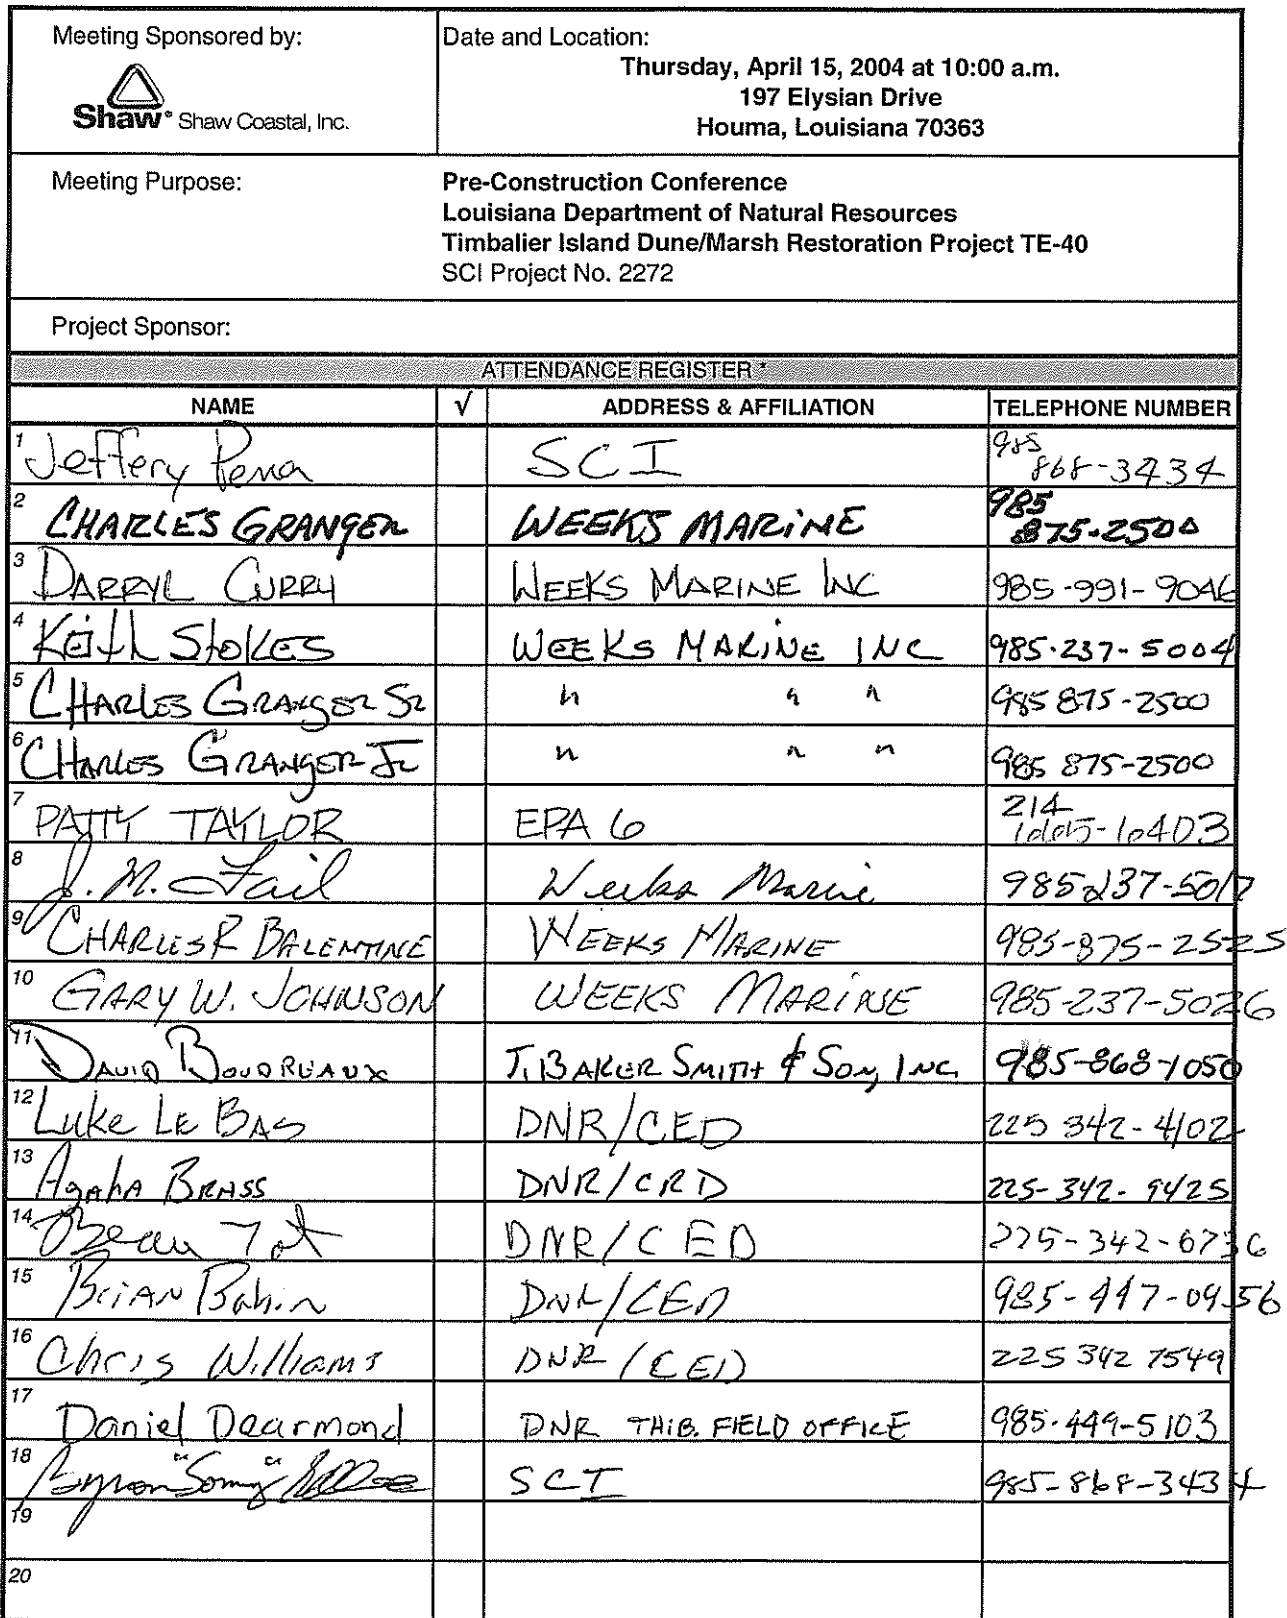 Meeting Sponsored by:
Shaw® Shaw Coastal, Inc.
Date and Location:
Thursday, April 15, 2004 at 10:00 a.m.
197 Elysian Drive
Houma, Louisiana 70363
Meeting Purpose:
Pre-Construction Conference
Louisiana Department of Natural Resources
Timbalier Island Dune/Marsh Restoration Project TE-40
SCI Project No. 2272
Project Sponsor:
ATTENDANCE REGISTER *
NAME √ ADDRESS & AFFILIATION TELEPHONE NUMBER
1 Jeffery Pena SCI 985 868-3434
2 CHARLES GRANGER WEEKS MARINE 985 875-2500
3 DARRYL CURRY WEEKS MARINE INC 985-991-9046
4 Keith Stokes WEEKS MARINE INC 985-237-5004
5 CHARLES GRANGER SR " " " 985 875-2500
6 CHARLES GRANGER JR " " " 985 875-2500
7 PATTY TAYLOR EPA 6 214 665-6403
8 J. M. Fail Weeks Marine 985 237-5017
9 CHARLES R BALENTINE WEEKS MARINE 985-875-2525
10 GARY W. JOHNSON WEEKS MARINE 985-237-5026
11 DAVID BOUDREAUX T. BAKER SMITH & SON, INC. 985-868-1050
12 Luke Le BAS DNR/CED 225 342-4102
13 BRASS DNR/CRD 225-342-9425
14 Beau DNR/CED 225-342-6736
15 BRIAN Babin DNR/CED 985-447-0956
16 Chris Williams DNR/CED 225 342 7549
17 Daniel Dearmond DNR THIB. FIELD OFFICE 985-449-5103
18 Byron "Sonny" SCI 985-868-3434
19
20